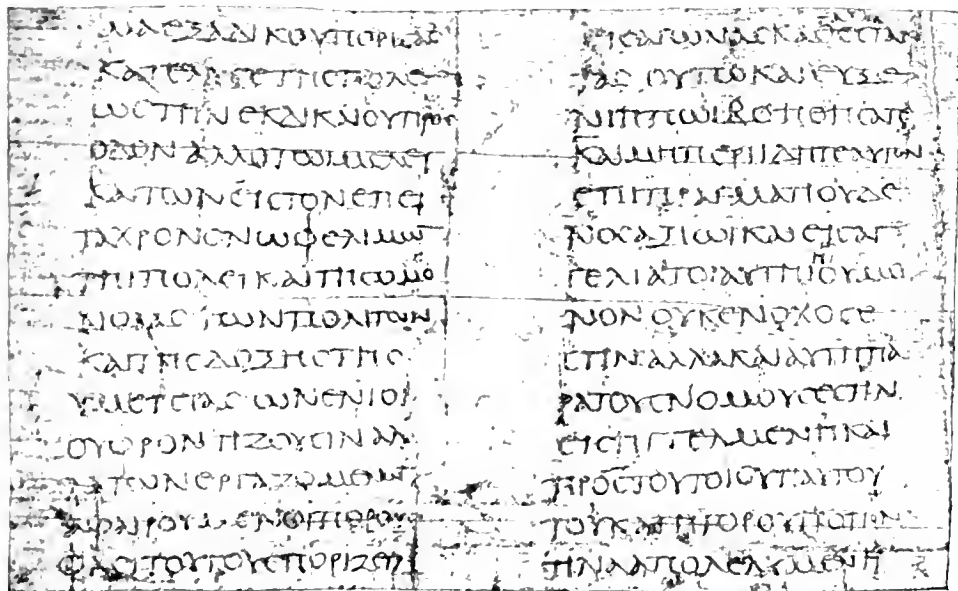 ΜΑΕΞΑΔΙΚΟΥΠΟΡΙСΑС
ΚΑΤΕΛΥСΕΤΗСΠΟΛΕ
ΩСΤΗΝΕΚΔΙΚΑΙΟΥΠΡΟС
ΟΔΟΝΑΛΛΟΤΩΙΜΕΛΕΙ
ΚΑΙΤΩΝΕΙСΤΟΝΕΠΕΙ
ΤΑΧΡΟΝΟΝΩΦΕΛΙΜΩΝ
ΤΗΙΠΟΛΕΙΚΑΙΤΗСΟΜΟ
ΝΟΙΑСΤΩΝΠΟΛΙΤΩΝ
ΚΑΙΤΗСΔΟΞΗСΤΗС
ΥΜΕΤΕΡΑСΩΝΕΝΙΟΙ
ΟΥΦΡΟΝΤΙΖΟΥСΙΝΑΛ
ΛΑΤΩΝΕΡΓΑΖΟΜΕΝΩΝ
ΑΦΑΙΡΟΥΜΕΝΟΙΠΟΡΟΥС
ΦΑСΙΤΟΥΤΟΥСΠΟΡΙΖΕΙΝ
ΕΙСΑΓΩΝΑСΚΑΘΕСΤΑΝ
ΤΑСΟΥΤΩΚΑΙΕΥΞΕ
ΝΙΠΠΩΙΒΟΗΘΗСΑΤΕ
ΚΑΙΜΗΠΕΡΙΙΔΗΤΕΑΥΤΟΝ
ΕΠΙΠΡΑΓΜΑΤΙΟΥΔΕ
ΝΟСΑΞΙΩΙΚΑΙΕΙСΑΓ
ΓΕΛΙΑΤΟΙΑΥΤΗΙΗΟΥΜΟ
ΝΟΝΟΥΚΕΝΟΧΟСΕ
СΤΙΝΑΛΛΑΚΑΙΑΥΤΗΠΑ
ΡΑΤΟΥСΝΟΜΟΥСΕСΤΙΝ
ΕΙСΗΓΓΕΛΜΕΝΗΚΑΙ
ΠΡΟСΤΟΥΤΟΙСΥΠΑΥΤΟΥ
ΤΟΥΚΑΤΗΓΟΡΟΥΤΡΟΠΟΝ
ΤΙΝΑΑΠΟΛΕΛΥΜΕΝΗ